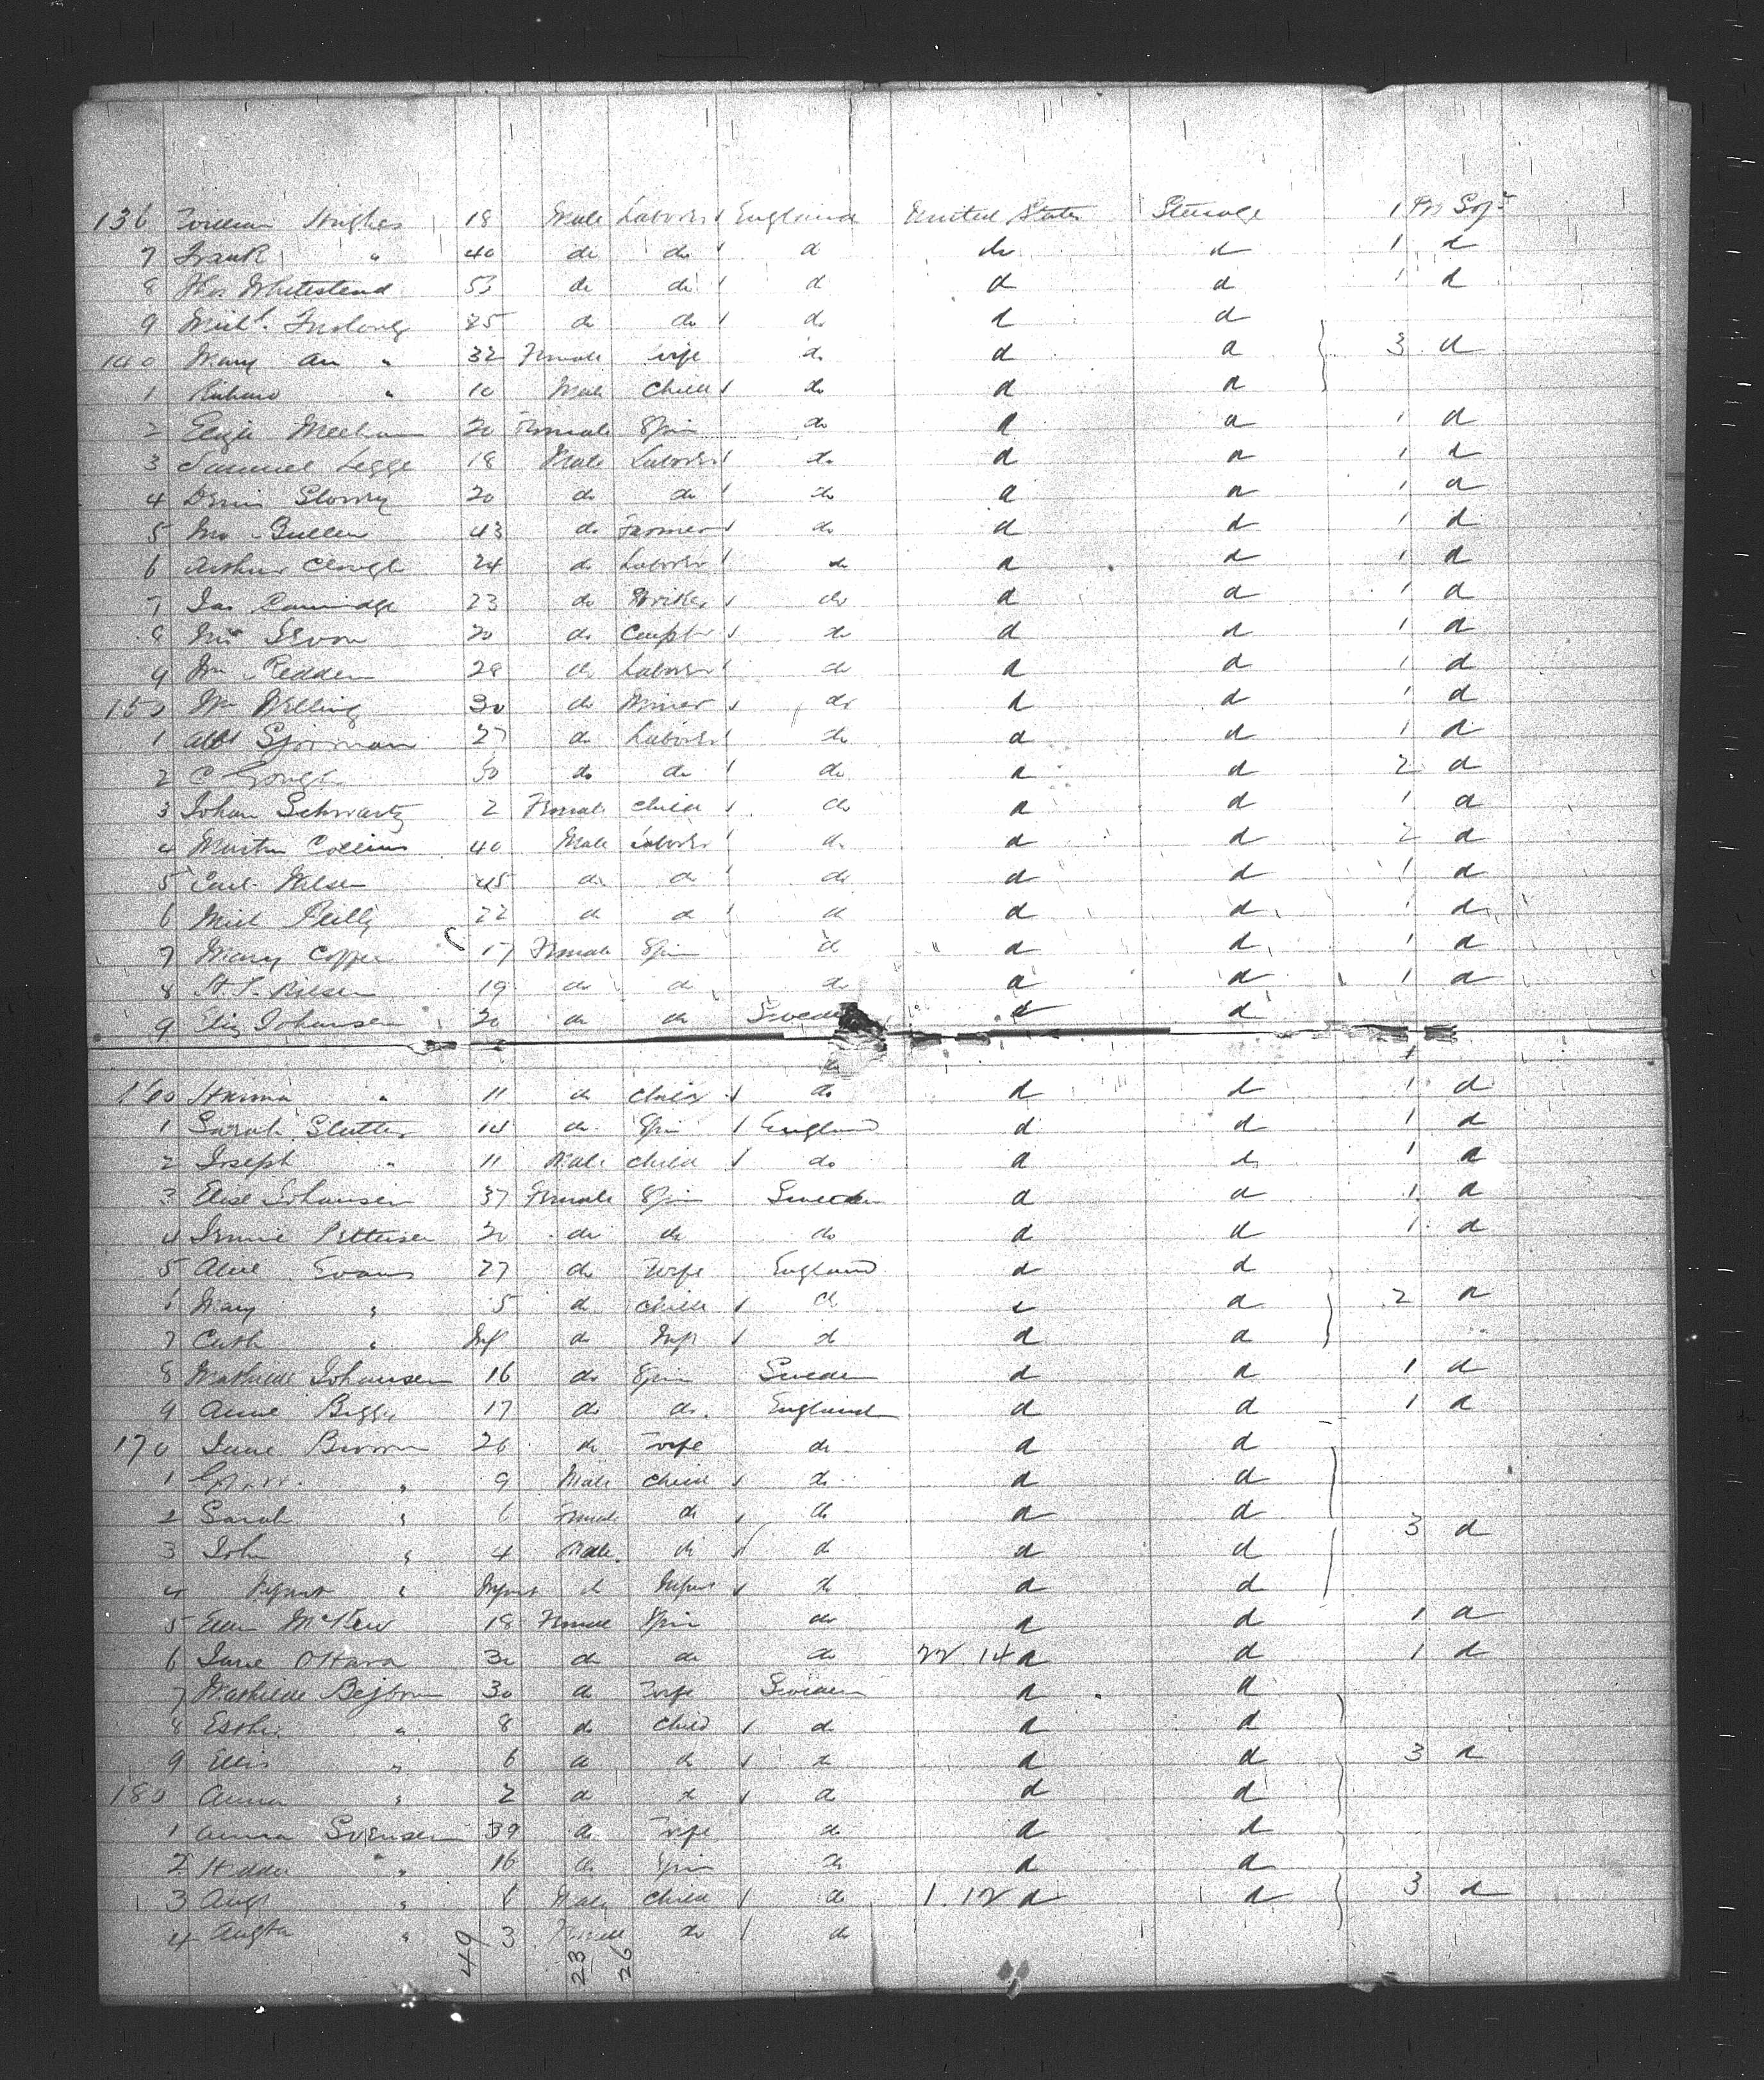 136 William Hughes 18 Male Laborer England United States Steerage 1 Pro Sojt
7 Frank " 40 do do do do do 1 d
8 Thos Whitestend 53 do do d d d 1 d
9 Michl. Furlong 25 do do do d d
140 Mary An " 32 Female Wife do d d 3 d
1 Richard " 10 Male Child do d d
2 Eliza Meehan 20 Female Spin do d d 1 d
3 Samuel Legge 18 Male Laborer do d d 1 d
4 Denis Slowey 20 do do do d d 1 d
5 Wm Bullen 43 do Farmer do d d 1 d
6 Arthur Clough 24 do Laborer do d d 1 d
7 Jas 23 do do d d 1 d
8 Wm 20 do do d d 1 d
9 Wm Redden 28 do Laborer do d d 1 d
150 Wm Welling 30 do Miner do d d 1 d
1 27 do Laborer do d d 1 d
2 C Gough 50 do do do d d 2 d
3 Johan Schwartz 2 Female Child do d d 1 d
4 Martin Collins 40 Male Laborer do d d 2 d
5 Carl 45 do d do d d 1 d
6 Mich Reilly 22 d d d d d 1 d
7 Mary Coffee 17 Female Spin d d d 1 d
8 19 do d do d d 1 d
9 Eliz Johansen 20 do do Sweden d d
do 1
160 " 11 do Child do d d 1 d
1 Sarah Slutter 14 do Spin England d d 1 d
2 Joseph " 11 Male Child do d d 1 d
3 Elise Johansen 37 Female Spin Sweden d d 1 d
4 Pettersen 20 do do do d d 1 d
5 Alice Evans 27 do Wife England d d
6 Mary " 5 d Child d d d 2 d
7 Cath " Inf do Inf d d d
8 Mathilde Johansen 16 do Spin Sweden d d 1 d
9 Anne Biggs 17 do do England d d 1 d
170 Jane Brown 26 do Wife do d d
1 " 9 Male Child do d d
2 Sarah " 6 Female do do d d
3 John " 4 Male do d d d 3 d
4 Infant " Infant d Infant do d d
5 Ellen McKew 18 Female Spin do d d 1 d
6 Jane OHara 30 do do do 22.14 d d 1 d
7 Mathilde 30 d Wife Sweden d d
8 Esther " 8 do Child do d d
9 Ellis " 6 d do do d d 3 d
180 Anna " 2 d d d d d
1 Anna Svensen 39 do Wife do d d
2 " 16 do Spin do d d
3 Augt " Male Child d 1.12 d d 3 d
4 Augta " 3 Female do do
49 23 26